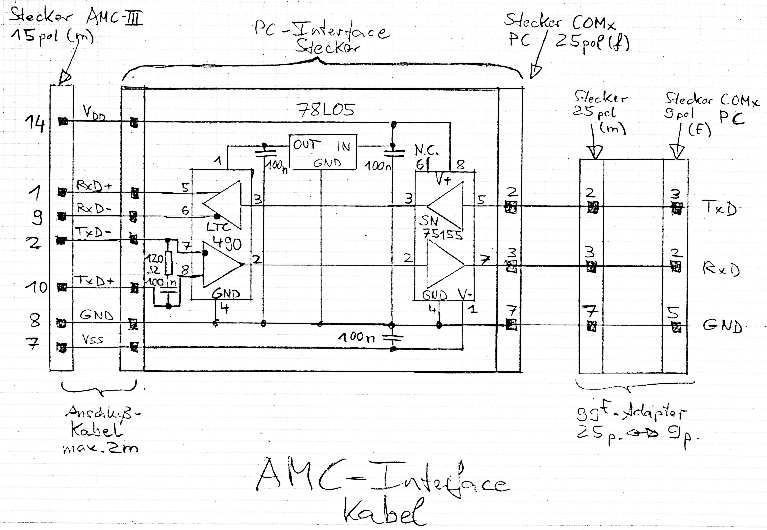 Stecker AMC-III
15pol (m)
PC-Interface
Stecker
Stecker COMx
PC 25pol (f)
Stecker
25pol
(m)
Stecker COMx
9pol PC
(f)
78L05
14 VDD
OUT IN
GND
100n
100n
N.C.
6 8
V+
1
1 RxD+ 5
9 RxD- 6
LTC
490
3
3
SN
75155
5
2
2
3
TxD
2 TxD- 7
120
Ω
100n
8
2
2
7
3
3
2
RxD
10 TxD+
GND
4
GND V-
4
1
8 GND
7
7
5
GND
7 VSS
100n
Anschluß-
Kabel
max. 2m
ggf-Adapter
25p. ↔ 9p.
AMC-Interface
Kabel